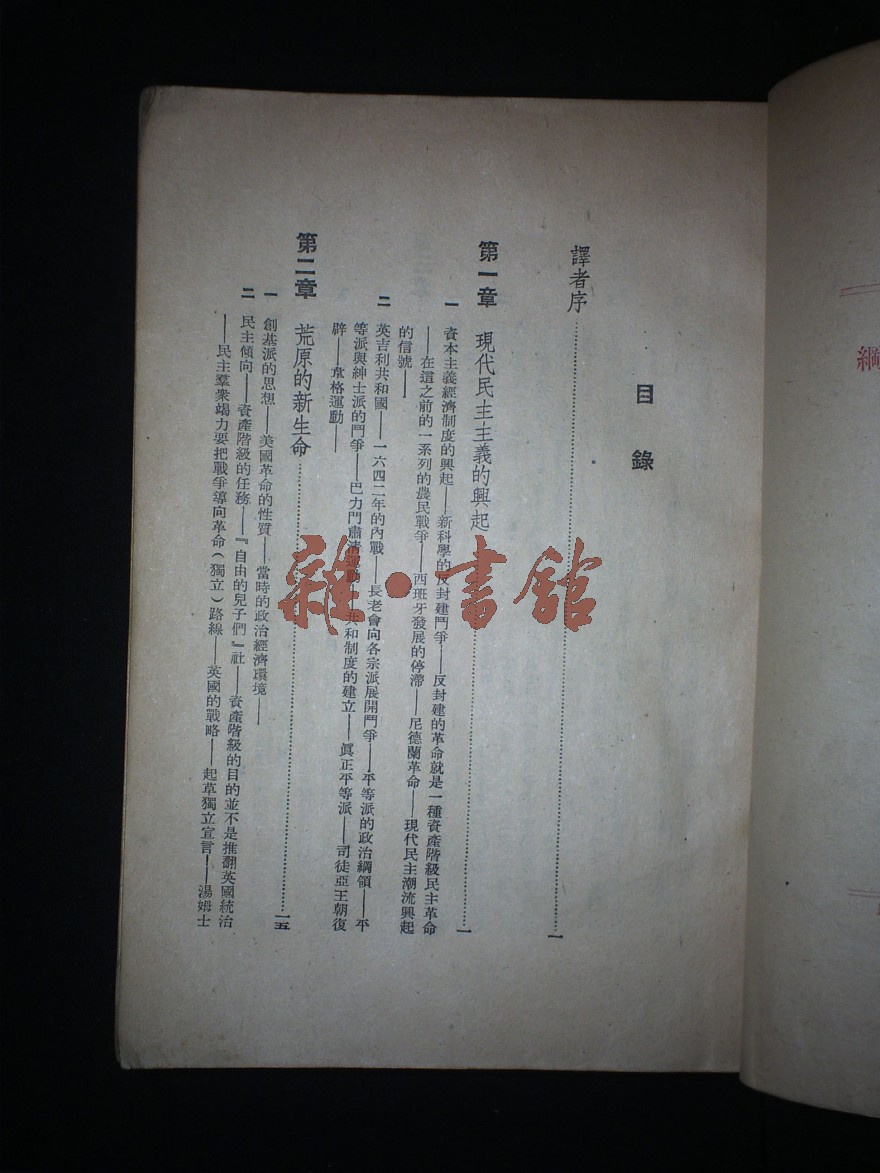 綱
目錄
譯者序 一
第一章 現代民主主義的興起 一
一 資本主義經濟制度的興起——新科學的反封建鬥爭——反封建的革命就是一種資產階級民主革命
——在這之前的一系列的農民戰爭——西班牙發展的停滯——尼德蘭革命——現代民主潮流興起
的信號——
二 英吉利共和國——一六四二年的內戰——長老會向各宗派展開鬥爭——平等派的政治綱領——平
等派與紳士派的鬥爭——巴力門肅清運動——共和制度的建立——眞正平等派——司徒亞王朝復
辟——韋格運動——
第二章 荒原的新生命 一五
一 創基派的思想——美國革命的性質——當時的政治經濟環境——
二 民主傾向——資產階級的任務——『自由的兒子們』社——資產階級的目的並不是推翻英國統治
——民主羣衆竭力要把戰爭導向革命(獨立)路線——英國的戰略——起草獨立宣言——湯姆士
雜·書館